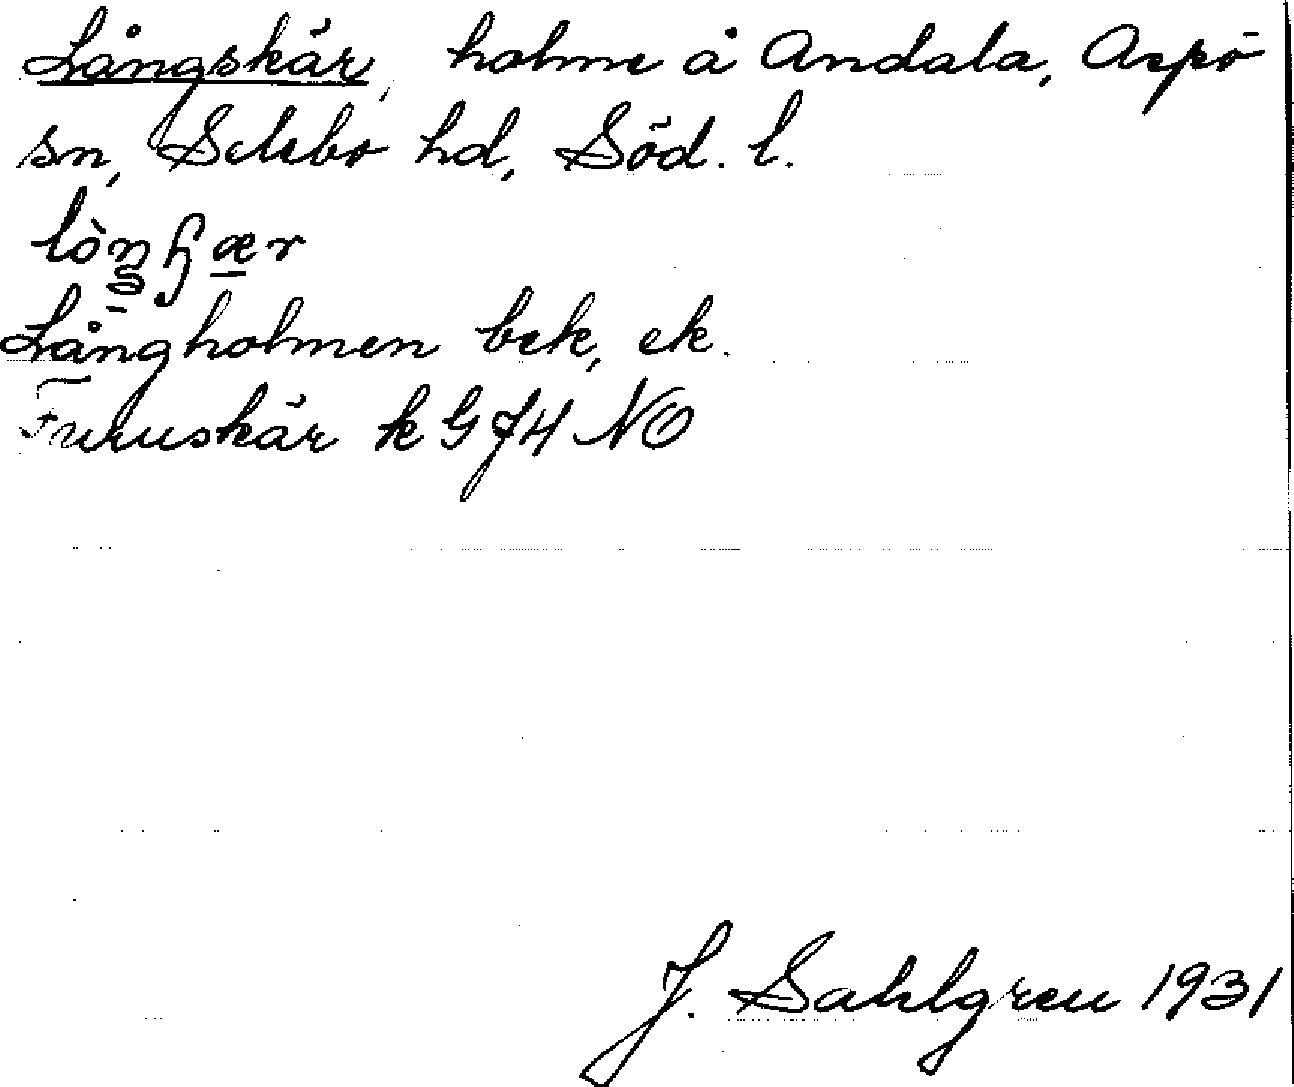 Långskär, holme å Andala, Aspö
sn, Selebo hd, Söd. l.
Långholmen bek, ek.
Furuskär k GJ4 NO
J. Sahlgren 1931